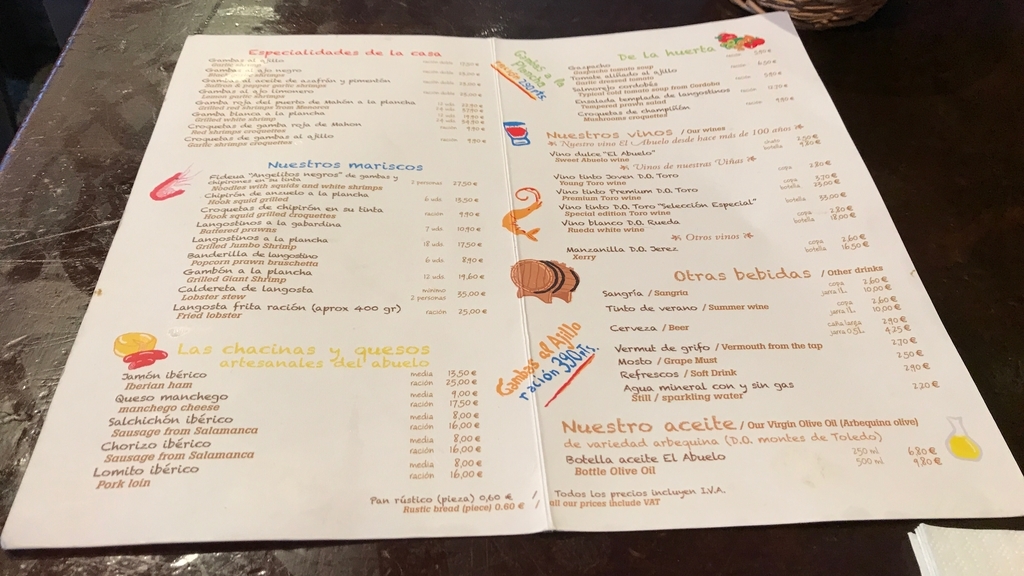 Especialidades de la casa
Gambas al ajillo
Garlic shrimp
Gambas al ajo negro
Black garlic shrimps
Gambas al aceite de azafrán y pimentón
Saffron & pepper garlic shrimps
Gambas al ajo limonero
Lemon garlic shrimps
Gamba roja del puerto de Mahón a la plancha
Grilled red shrimps from Menorca
Gamba blanca a la plancha
Grilled white shrimp
Croquetas de gamba roja de Mahón
Red shrimps croquettes
Croquetas de gambas al ajillo ración 9,90 €
Garlic shrimps croquettes
Nuestros mariscos
Fideua "Angelitos negros" de gambas y
chipirones en su tinta 2 personas 27,50 €
Noodles with squids and white shrimps
Chipirón de anzuelo a la plancha 6 uds 13,50 €
Hook squid grilled
Croquetas de chipirón en su tinta ración 9,90 €
Hook squid grilled croquettes
Langostinos a la gabardina 7 uds 10,90 €
Battered prawns
Langostinos a la plancha 18 uds 17,50 €
Grilled Jumbo Shrimp
Banderilla de langostino 6 uds 8,90 €
Popcorn prawn bruschetta
Gambón a la plancha 12 uds 19,60 €
Grilled Giant Shrimp
Caldereta de langosta mínimo 2 personas 55,00 €
Lobster stew
Langosta frita ración (aprox 400 gr) ración 25,00 €
Fried lobster
Las chacinas y quesos
artesanales del abuelo
Jamón ibérico media 13,50 €
Iberian ham ración 25,00 €
Queso manchego media 9,00 €
manchego cheese ración 17,50 €
Salchichón ibérico media 8,00 €
Sausage from Salamanca ración 16,00 €
Chorizo ibérico media 8,00 €
Sausage from Salamanca ración 16,00 €
Lomito ibérico media 8,00 €
Pork loin ración 16,00 €
Pan rústico (pieza) 0,60 € /
Rustic bread (piece) 0.60 € /
Gambas a la
plancha
De la huerta
Gazpacho
Gazpacho tomato soup
Tomate aliñado al ajillo
Garlic dressed tomato
Salmorejo cordobés
Typical cold tomato soup from Cordoba
Ensalada templada de langostinos
Tempered prawn salad
Croquetas de champiñón ración 9,90 €
Mushrooms croquettes
Nuestros vinos / Our wines
Nuestro vino El Abuelo desde hace más de 100 años
Vino dulce "El Abuelo" chato 2,50 €
Sweet Abuelo wine botella 9,80 €
Vinos de nuestras Viñas
Vino tinto Joven D.O. Toro copa 2,80 €
Young Toro wine
Vino tinto Premium D.O. Toro copa 3,70 €
Premium Toro wine botella 25,00 €
Vino tinto D.O. Toro "Selección Especial" botella 35,00 €
Special edition Toro wine
Vino blanco D.O. Rueda copa 2,80 €
Rueda white wine botella 18,00 €
Otros vinos
Manzanilla D.O. Jerez copa 2,60 €
Xerry botella 16,50 €
Otras bebidas / Other drinks
Sangría / Sangria copa 2,60 €
jarra 1L. 10,00 €
Tinto de verano / Summer wine copa 2,60 €
jarra 1L. 10,00 €
Cerveza / Beer caña larga 2,90 €
jarra 0,5L. 4,25 €
Vermut de grifo / Vermouth from the tap 2,70 €
Mosto / Grape Must 2,50 €
Refrescos / Soft Drink 2,90 €
Agua mineral con y sin gas 2,20 €
Still / sparkling water
Gambas al Ajillo
ración 390 pts.
Nuestro aceite / Our Virgin Olive Oil (Arbequina olive)
de variedad arbequina (D.O. montes de Toledo)
Botella aceite El Abuelo 250 ml 6,80 €
Bottle Olive Oil 500 ml 9,80 €
Todos los precios incluyen I.V.A.
all our prices include VAT